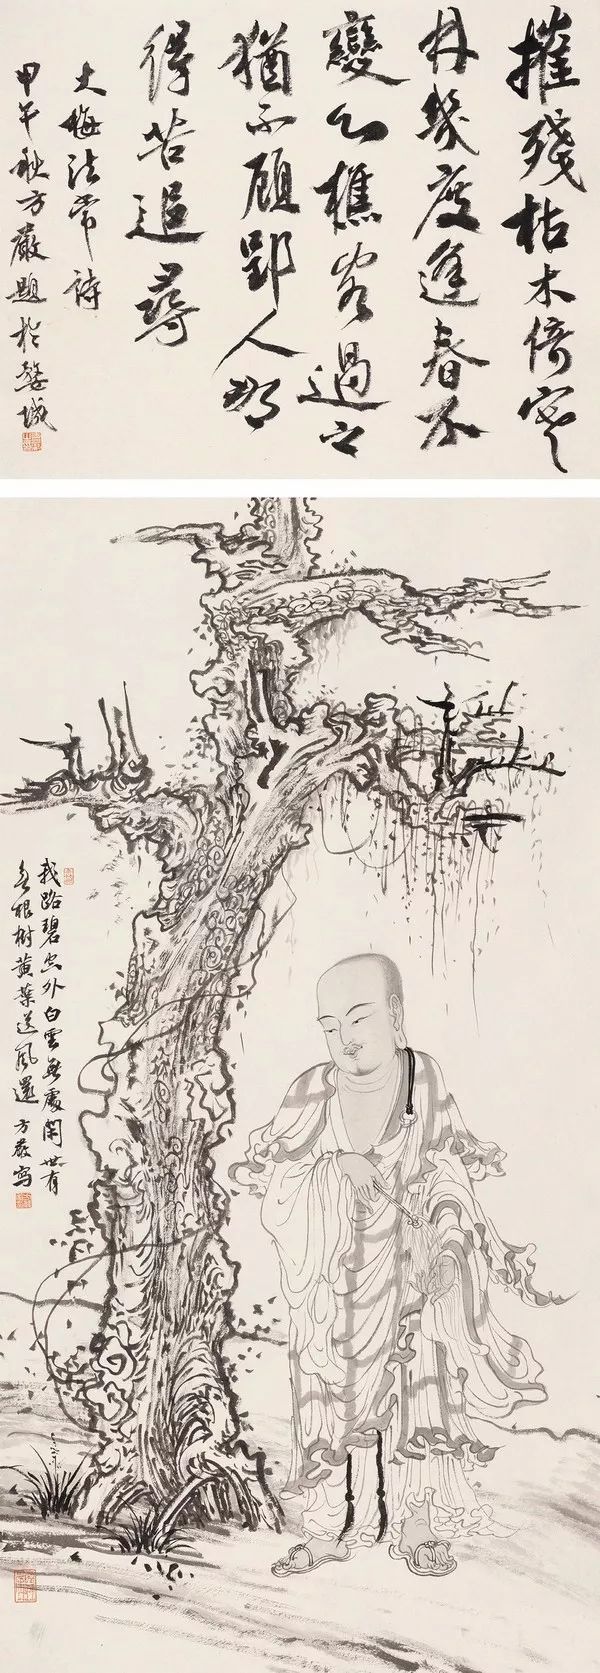 摧殘枯木倚寒
林幾度逢春不
變心樵客過之
猶不顧郢人那
得苦追尋
大梅法常詩
甲午秋方嚴題於婺城
我路碧空外白雲無處閑世有
無根樹黃葉送風還 方嚴寫